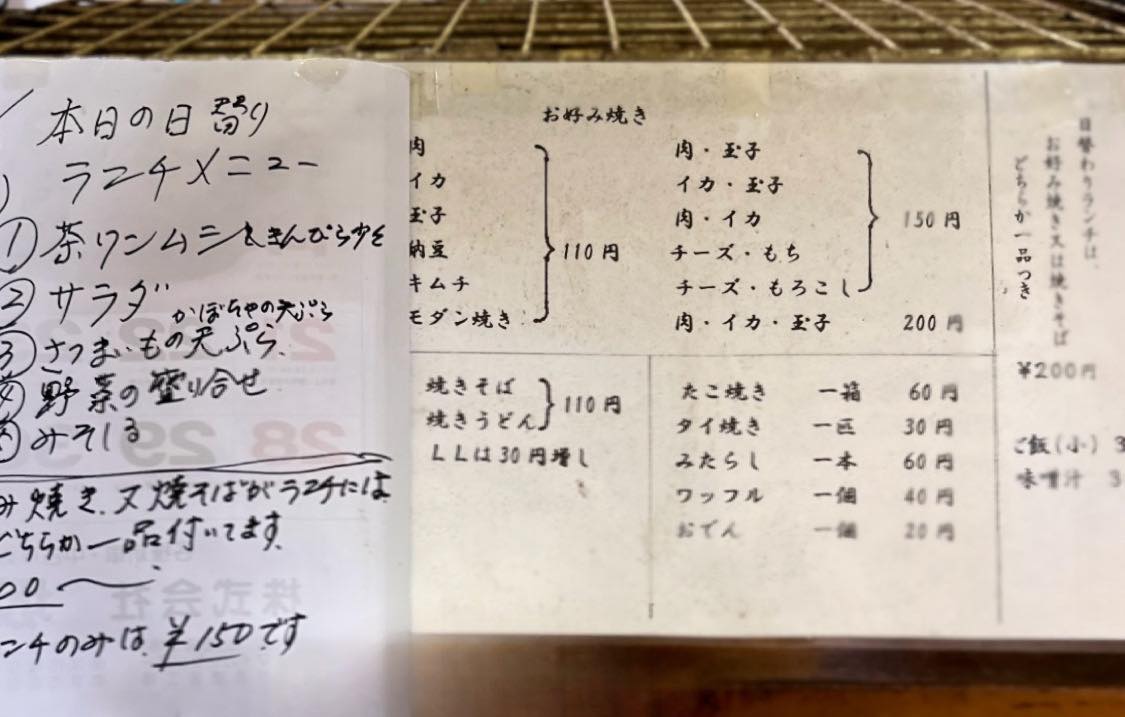 本日の日替り
ランチメニュー
① 茶ワンムシときんぴら少々
② サラダ かぼちゃの天ぷら
③ さつまいもの天ぷら
野菜の盛り合せ
みそしる
み焼き、又焼そばがランチには
どちらか一品付いてます
00
ンチのみは、¥150です
お好み焼き
肉
イカ
玉子
納豆
キムチ
モダン焼き
110円
肉・玉子
イカ・玉子
肉・イカ
チーズ・もち
チーズ・もろこし
150円
肉・イカ・玉子 200円
焼きそば
焼きうどん
110円
LLは30円増し
たこ焼き 一箱 60円
タイ焼き 一匹 30円
みたらし 一本 60円
ワッフル 一個 40円
おでん 一個 20円
日替わりランチは、
お好み焼き又は焼きそば
どちらか一品つき
¥200円
ご飯(小) 3
味噌汁 3
28
29
株式会社